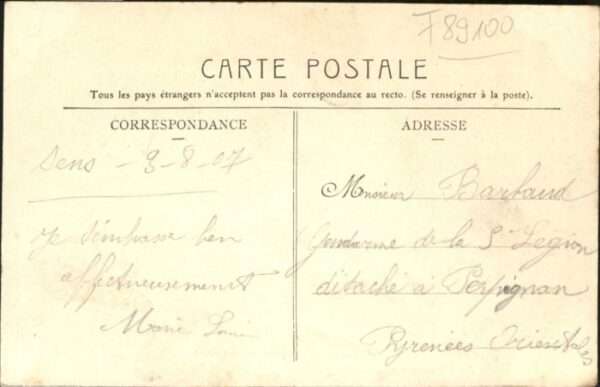 F89100
CARTE POSTALE
Tous les pays étrangers n'acceptent pas la correspondance au recto. (Se renseigner à la poste).
CORRESPONDANCE
ADRESSE
Sens - 9-8-07
Monsieur Barbaud
Je t'embrasse bien
Gendarme de la 5e Légion
affectueusement
détaché à Perpignan
Marie
Pyrénées Orientales